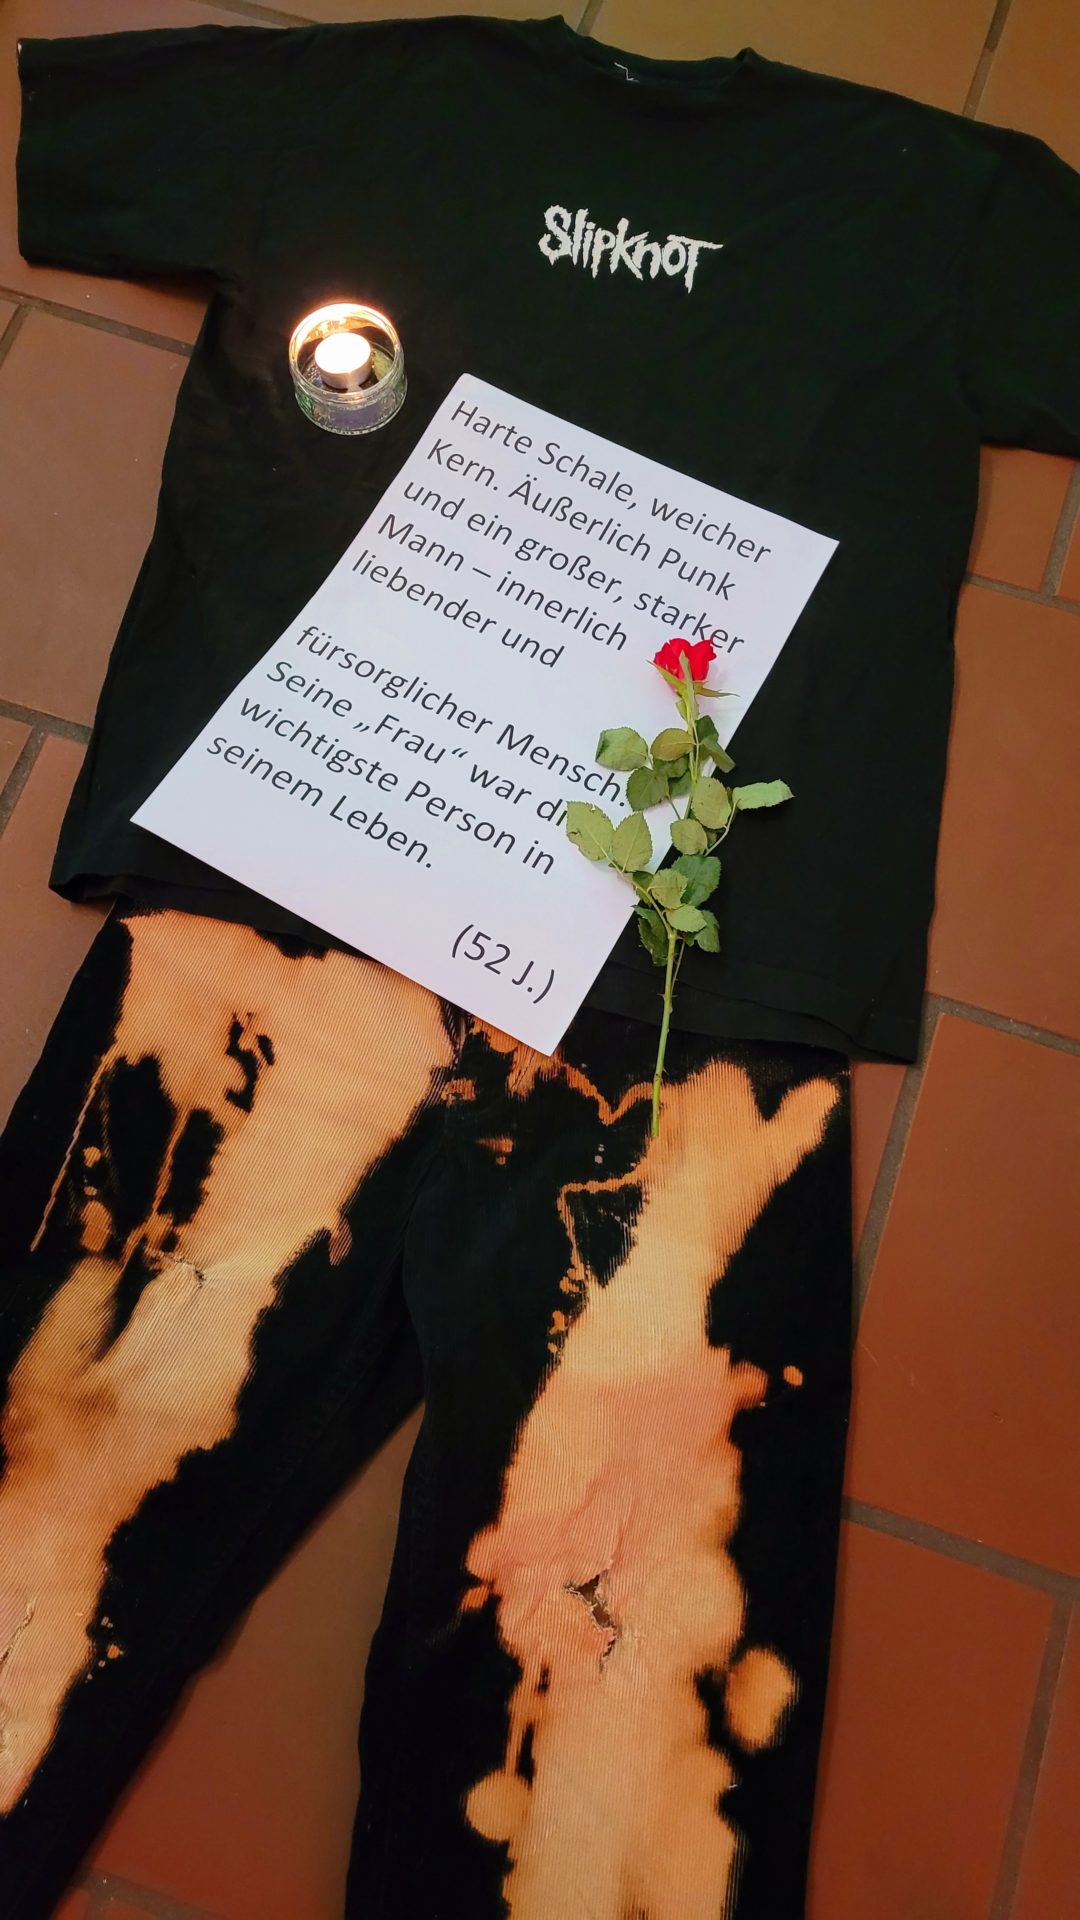 Slipknot
Harte Schale, weicher
Kern. Äußerlich Punk
und ein großer, starker
Mann – innerlich
liebender und
fürsorglicher Mensch.
Seine „Frau“ war di
wichtigste Person in
seinem Leben.
(52 J.)